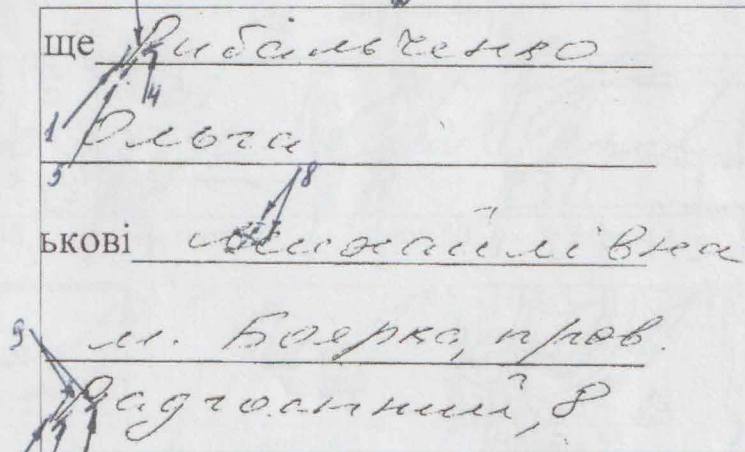 ще Рибальченко
4
1 Ольга
5 8
ькові Михайлівна
9 м. Боярка, пров.
Радгоспний, 8